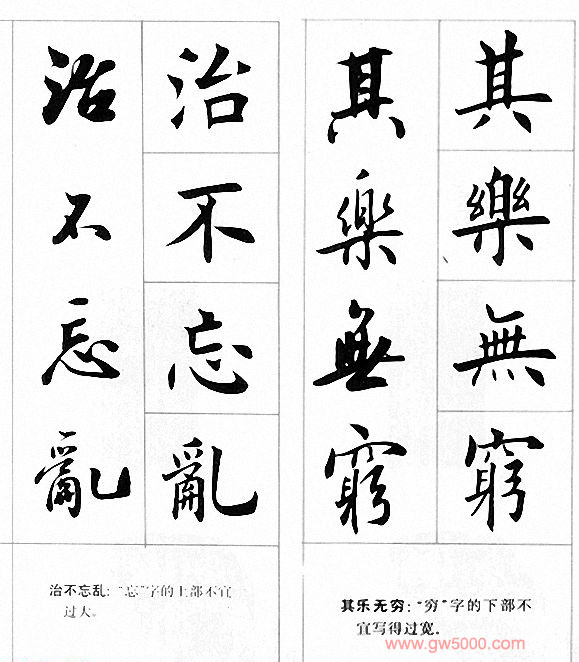 其樂無窮
其樂無窮
其乐无穷:“穷”字的下部不
宜写得过宽。
治不忘亂
治不忘亂
治不忘乱:“忘”字的上部不宜
过大。
www.gw5000.com